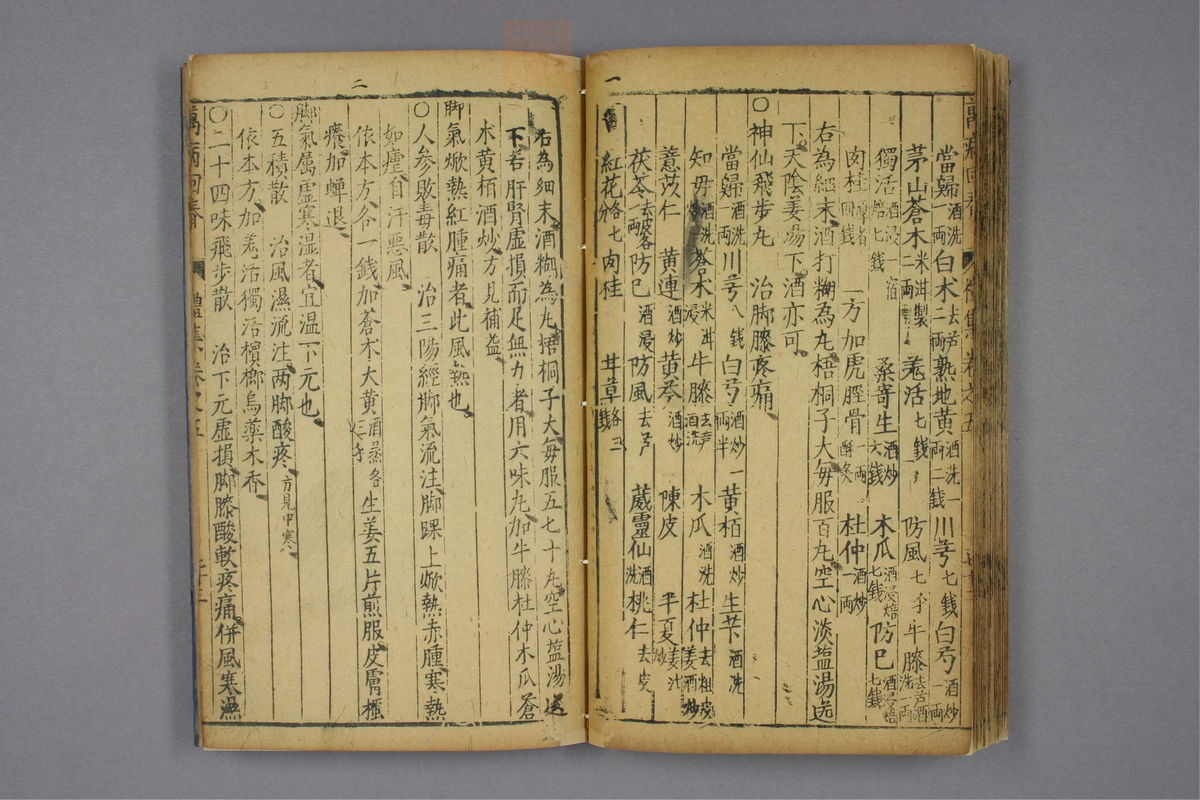 一
當歸酒洗一兩 白朮去芦二兩 熟地黃酒洗一兩二錢 川芎七錢 白芍酒炒一兩
茅山蒼朮米泔製二兩 羗活七錢 防風七錢 牛膝去芦酒洗一兩
獨活酒浸一宿焙七錢 桑寄生酒炒六錢 木瓜酒浸焙七錢 防巳酒浸焙七錢
肉桂厚者四錢 一方加虎脛骨一兩酥炙 杜仲酒炒一兩
右為細末酒打糊為丸梧桐子大每服百丸空心淡塩湯送
下天陰姜湯下酒亦可
○神仙飛步丸 治脚膝疼痛
當歸酒洗一兩 川芎八錢 白芍酒炒一兩半 黃栢酒炒 生芐酒洗
知母酒洗炒 蒼朮米泔浸 牛膝去芦酒洗 木瓜酒洗 杜仲去粗皮姜酒炒
薏苡仁 黃連酒炒 黃芩酒炒 陳皮 半夏姜汁炒
茯苓去皮各一兩 防巳酒浸 防風去芦 葳靈仙酒洗 桃仁去皮
紅花各七分 肉桂 甘草各三錢
二
右為細末酒糊為丸梧桐子大每服五七十丸空心塩湯送
下若肝腎虛損而足無力者用六味丸加牛膝杜仲木瓜蒼
朮黃栢酒炒方見補益
脚氣焮熱紅腫痛者此風熱也
○人參敗毒散 治三陽經脚氣流注脚踝上焮熱赤腫寒熱
如瘧自汗惡風
依本方各一錢加蒼朮大黃酒蒸各三分生姜五片煎服皮膚搔
癢加蟬退
脚氣属虛寒濕者宜温下元也
○五積散 治風濕流注两脚酸疼方見中寒
依本方加羗活獨活檳榔烏藥木香
○二十四味飛步散 治下元虛損脚膝酸軟疼痛併風寒濕
萬病回春 卷之五